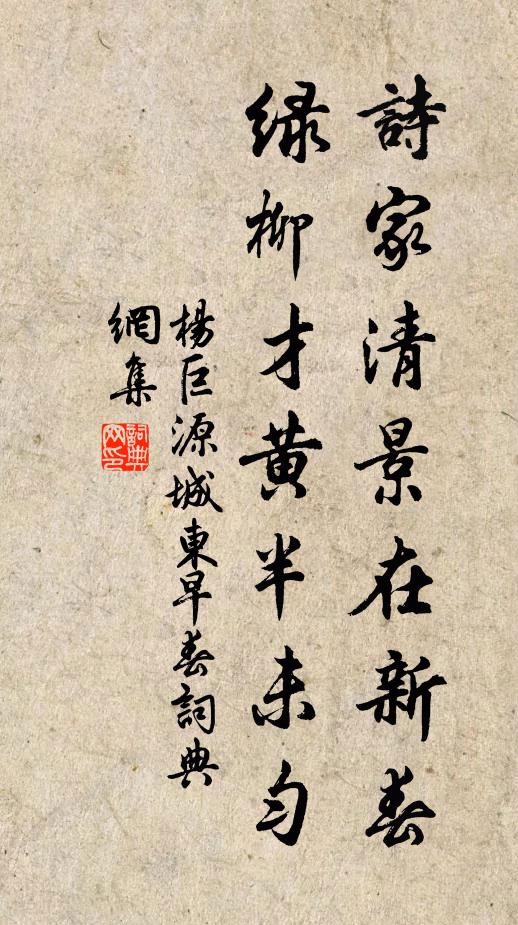 詩家清景在新春
緑柳才黃半未勻
楊巨源城東早春詞典
網集
詞典
网印